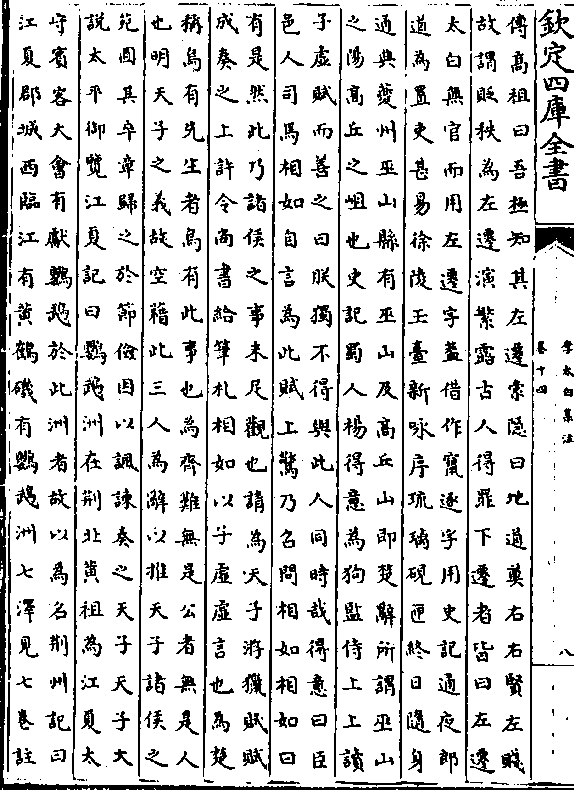 欽定四庫全書
傳高祖曰吾極知其左遷索隱曰地道尊右右賢左賤
故謂貶秩為左遷演繁露古人得罪下遷者皆曰左遷
太白無官而用左遷字蓋借作竄逐字用史記通夜郎
道為置吏甚易徐陵玉臺新咏序琉璃硯匣終日隨身
通典夔州巫山縣有巫山及高丘山即楚辭所謂巫山
之陽高丘之岨也史記蜀人楊得意為狗監侍上上讀
子虛賦而善之曰朕獨不得與此人同時哉得意曰臣
邑人司馬相如自言為此賦上驚乃召問相如相如曰
有是然此乃諸侯之事未足觀也請為天子游獵賦賦
成奏之上許令尚書給筆札相如以子虛虛言也為楚
稱烏有先生者烏有此事也為齊難無是公者無是人
也明天子之義故空藉此三人為辭以推天子諸侯之
苑囿其卒章歸之於節儉因以諷諫奏之天子天子大
說太平御覽江夏記曰鸚鵡洲在荆北黃祖為江夏太
守賓客大會有獻鸚鵡於此洲者故以為名荆州記曰
江夏郡城西臨江有黃鶴磯有鸚鵡洲七澤見七卷註
李太白集注
卷十四
八